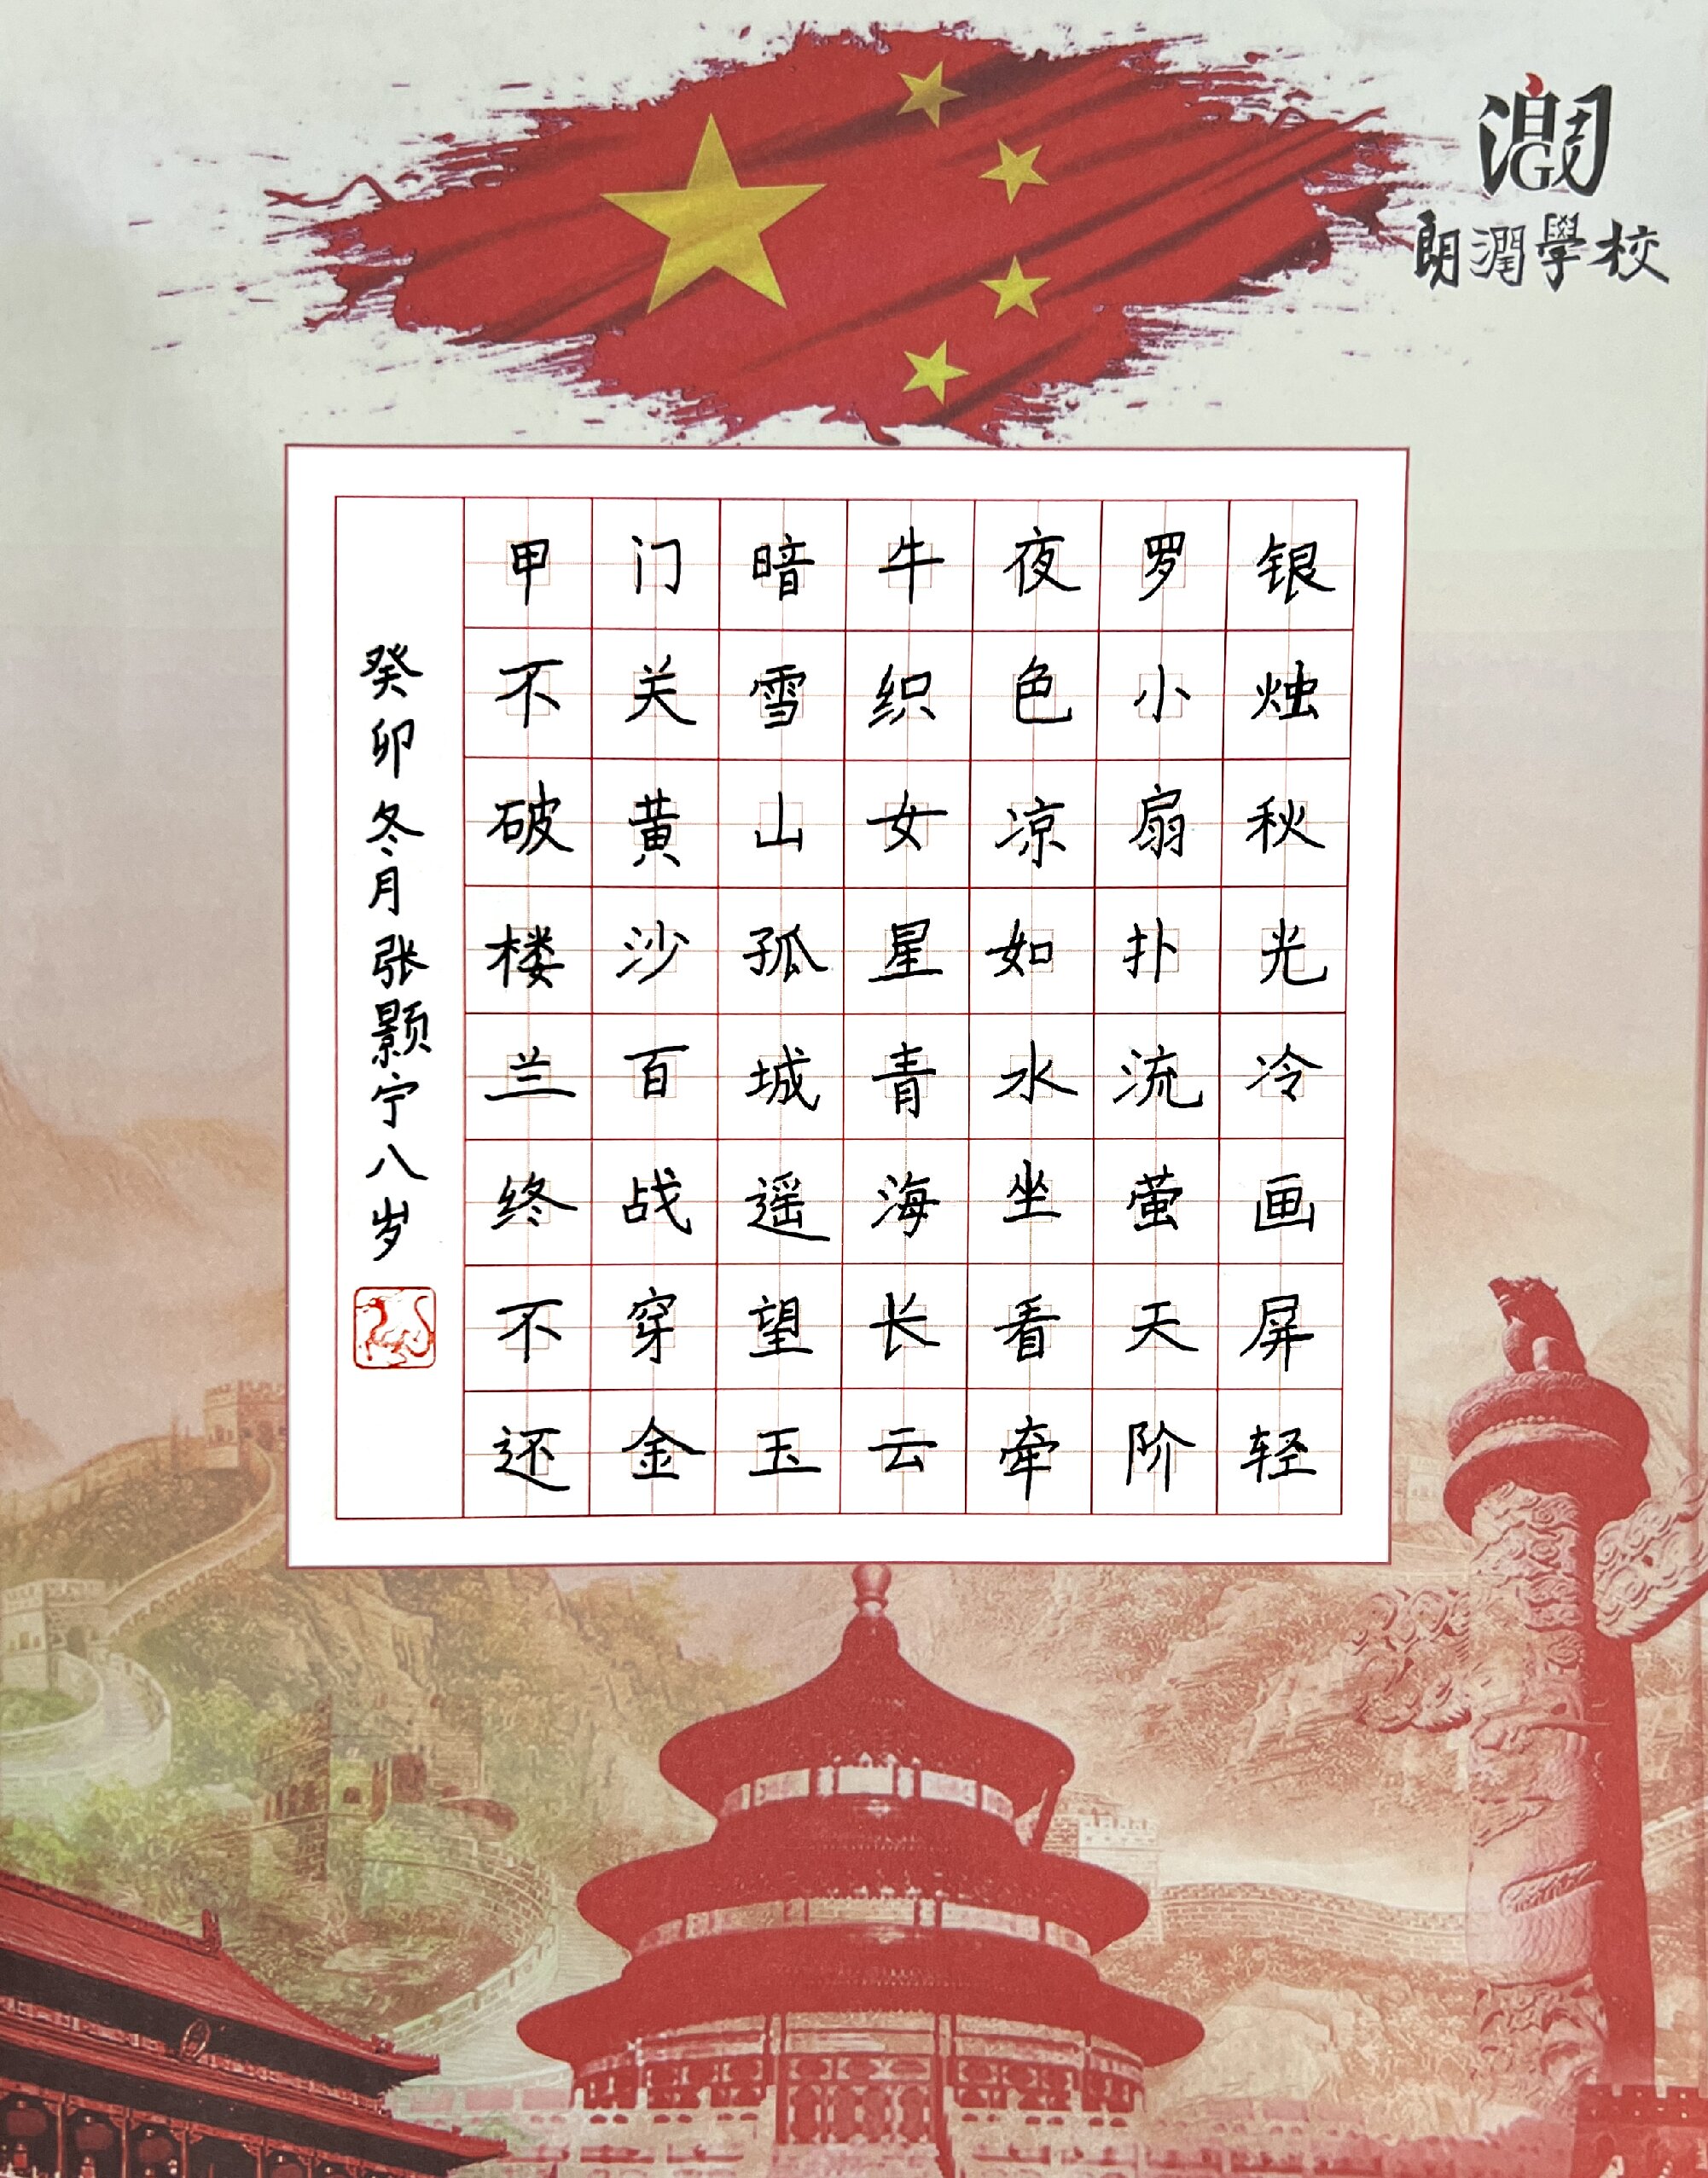 朗潤學校
银烛秋光冷画屏轻
罗小扇扑流萤天阶
夜色凉如水坐看牵
牛织女星青海长云
暗雪山孤城遥望玉
门关黄沙百战穿金
甲不破楼兰终不还
癸卯冬月张颢宁八岁